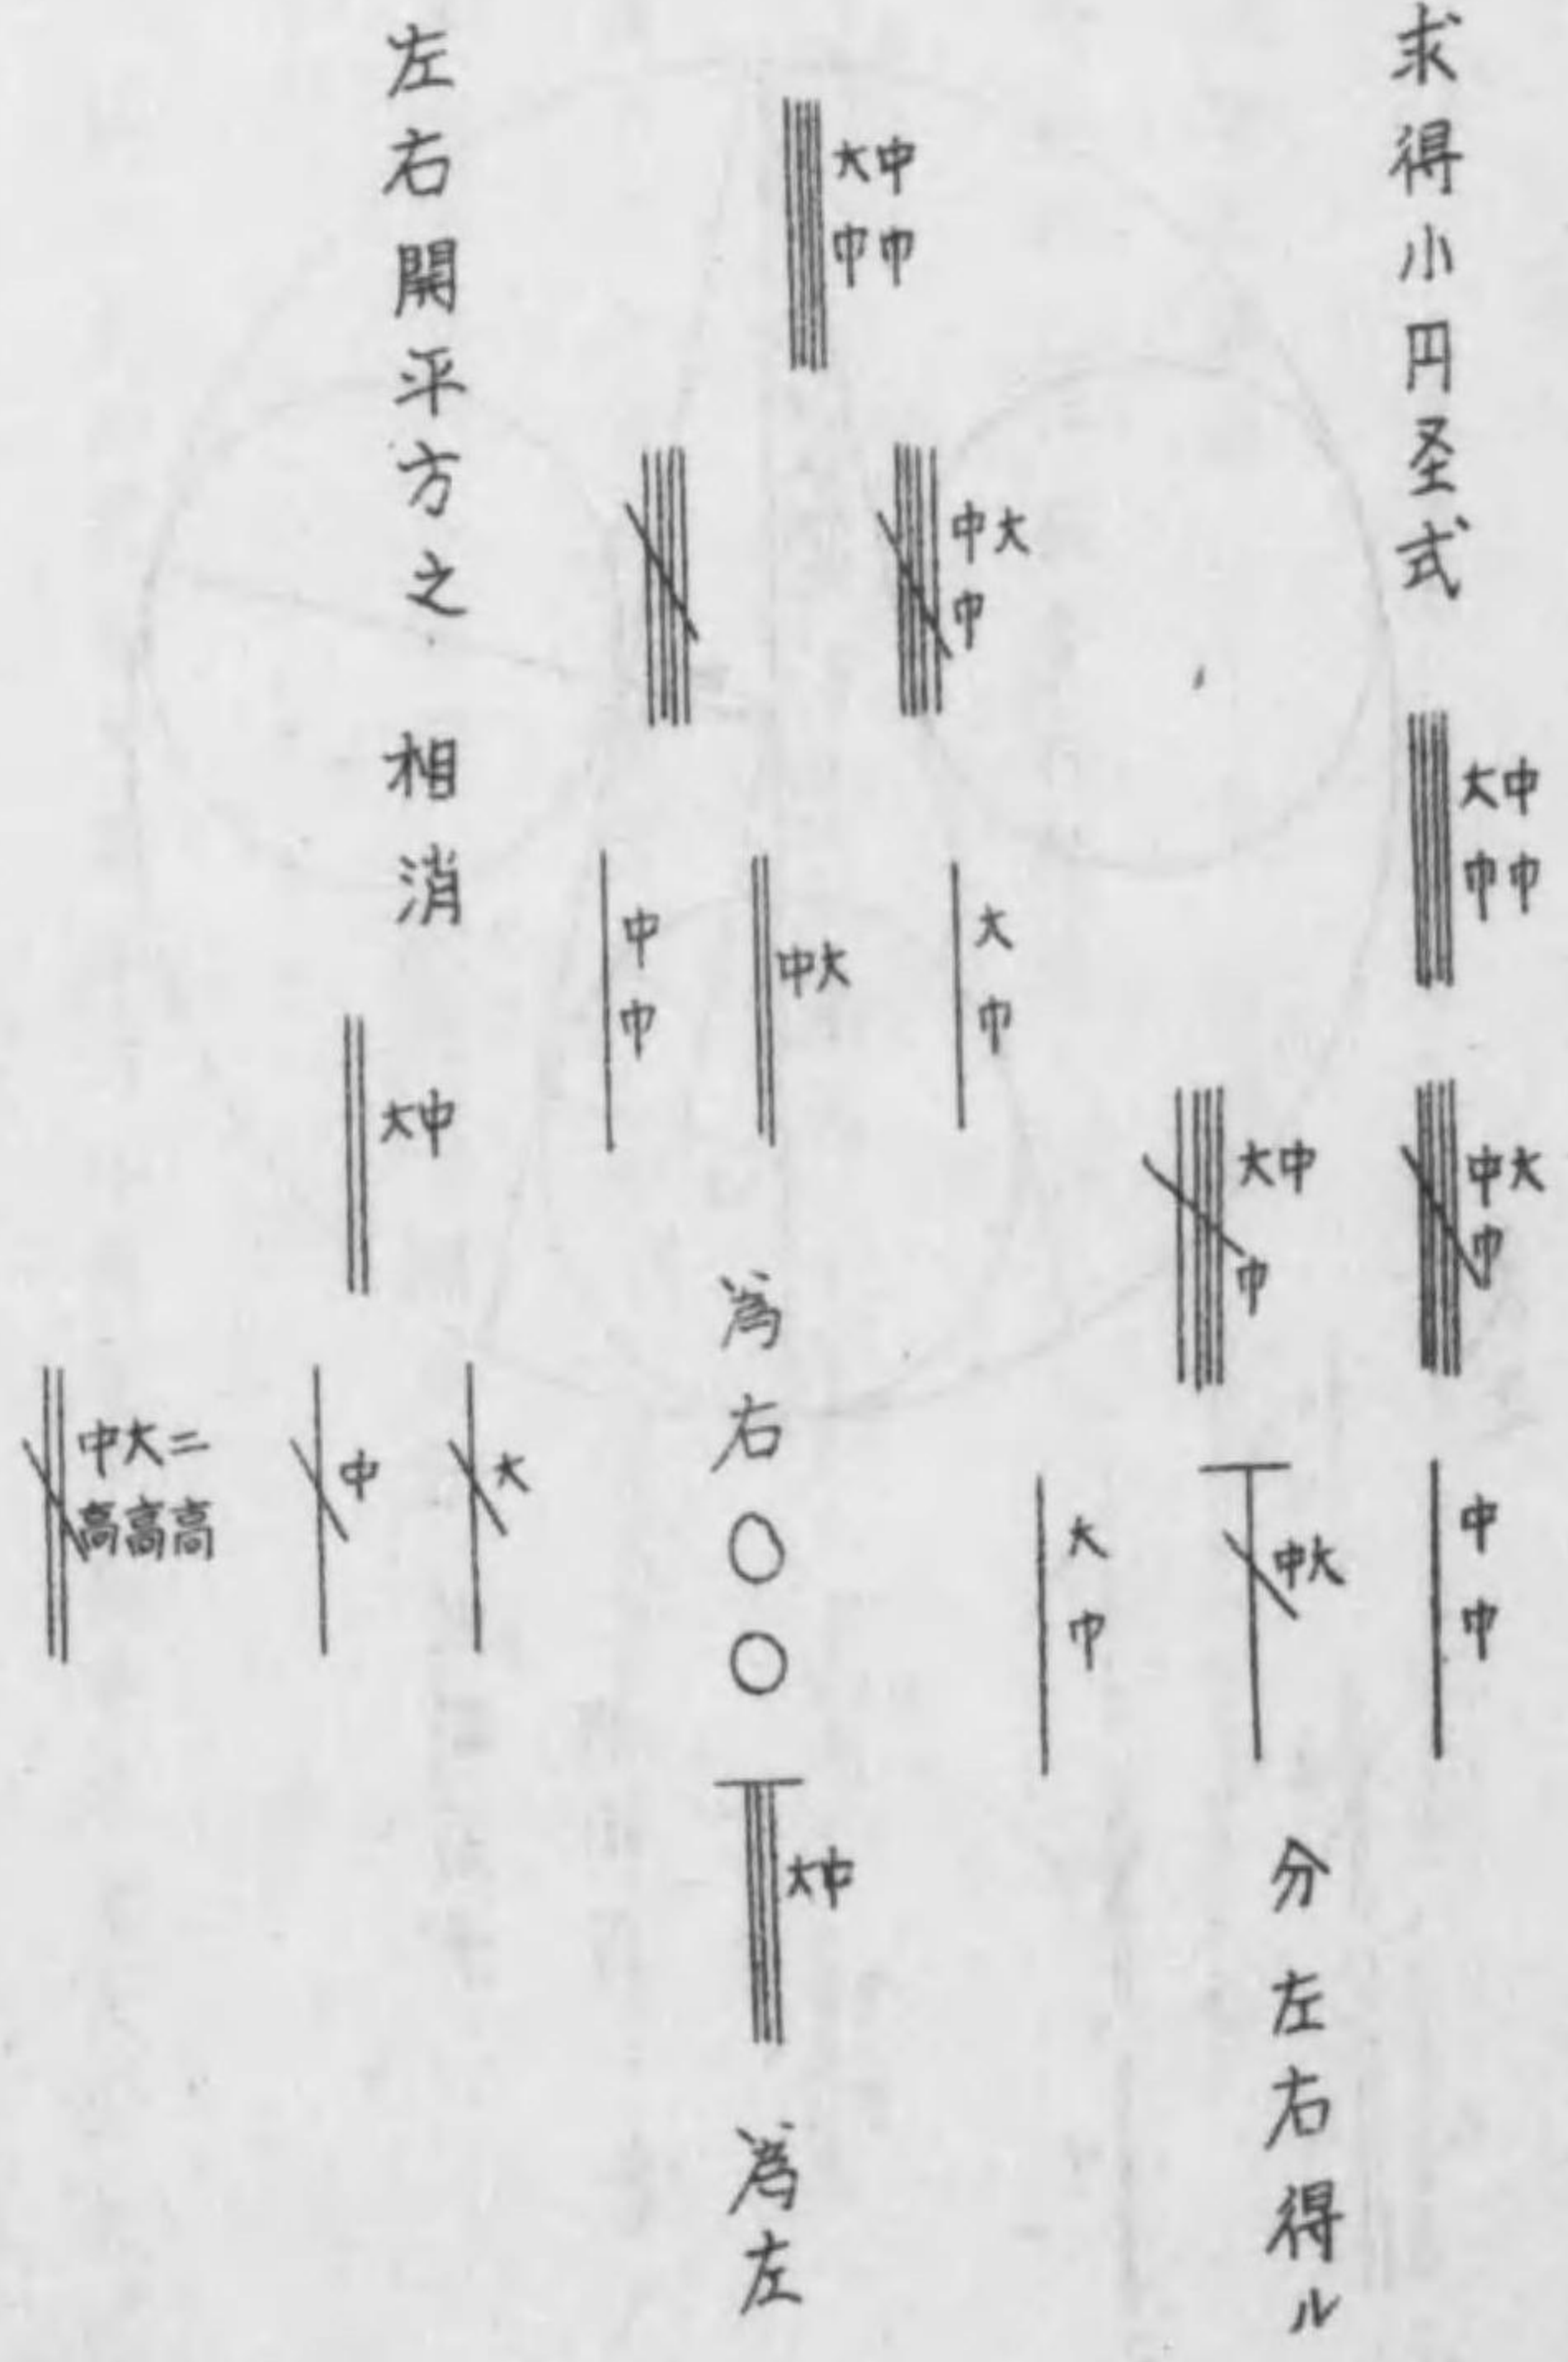 求得小円圣式
大中
巾巾
中大
巾
大中
巾
中
巾
中大
大
巾
分左右得ル
大中
巾巾
中大
巾
大
巾
中大
中
巾
為右
〇〇
大中
為左
左右開平方之 相消
大中
大
中
中大二
高高高